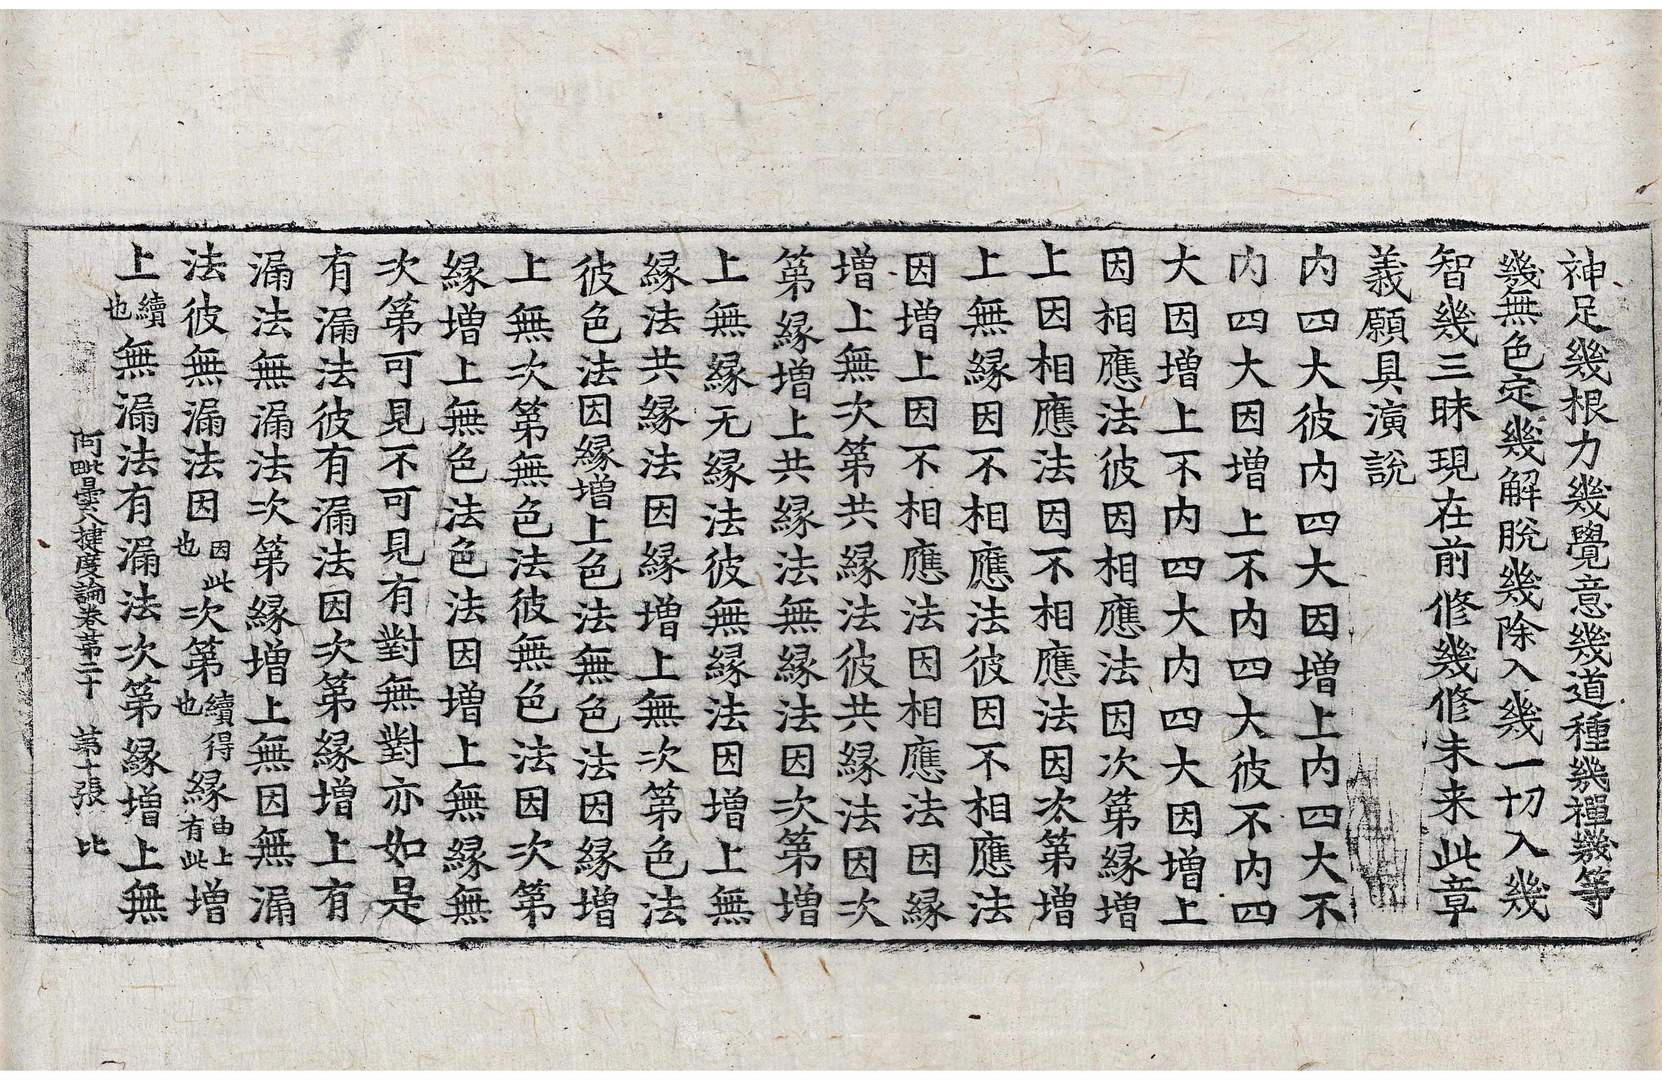 神足幾根力幾覺意幾道種幾禪幾等
幾無色定幾解脫幾除入幾一切入幾
智幾三昧現在前修幾修未来此章
義願具演說
内四大彼内四大因増上内四大不
内四大因増上不内四大彼不内四
大因増上不内四大内四大因増上
因相應法彼因相應法因次第縁増
上因相應法因不相應法因次第増
上無縁因不相應法彼因不相應法
因増上因不相應法因相應法因縁
増上無次第共縁法彼共縁法因次
第縁増上共縁法無縁法因次第増
上無縁无縁法彼無縁法因増上無
縁法共縁法因縁増上無次第色法
彼色法因縁増上色法無色法因縁増
上無次第無色法彼無色法因次第
縁増上無色法色法因増上無縁無
次第可見不可見有對無對亦如是
有漏法彼有漏法因次第縁増上有
漏法無漏法次第縁増上無因無漏
法彼無漏法因因此也次第續得也縁由上有此増
上續也無漏法有漏法次第縁増上無
阿毗曇八揵度論卷第二十 第十張 比